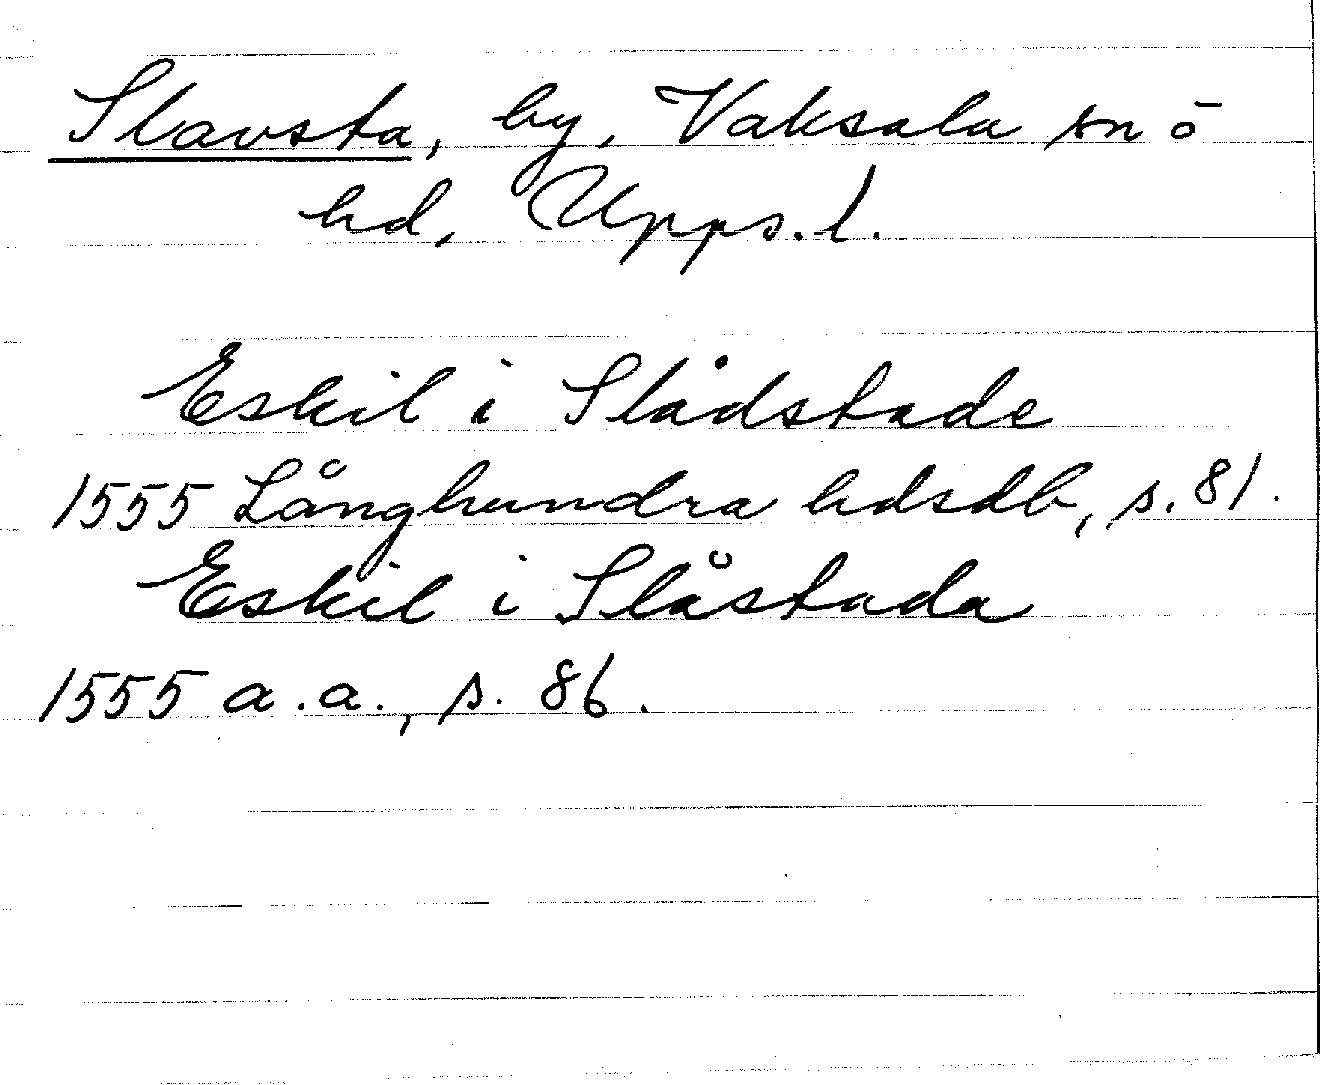 Slavsta, by, Vaksala sn ō
hd, Upps. l.
Eskil i Slådstade
1555 Långhundra hdsdb, s. 81.
Eskil i Slåstada
1555 a.a., s. 86.